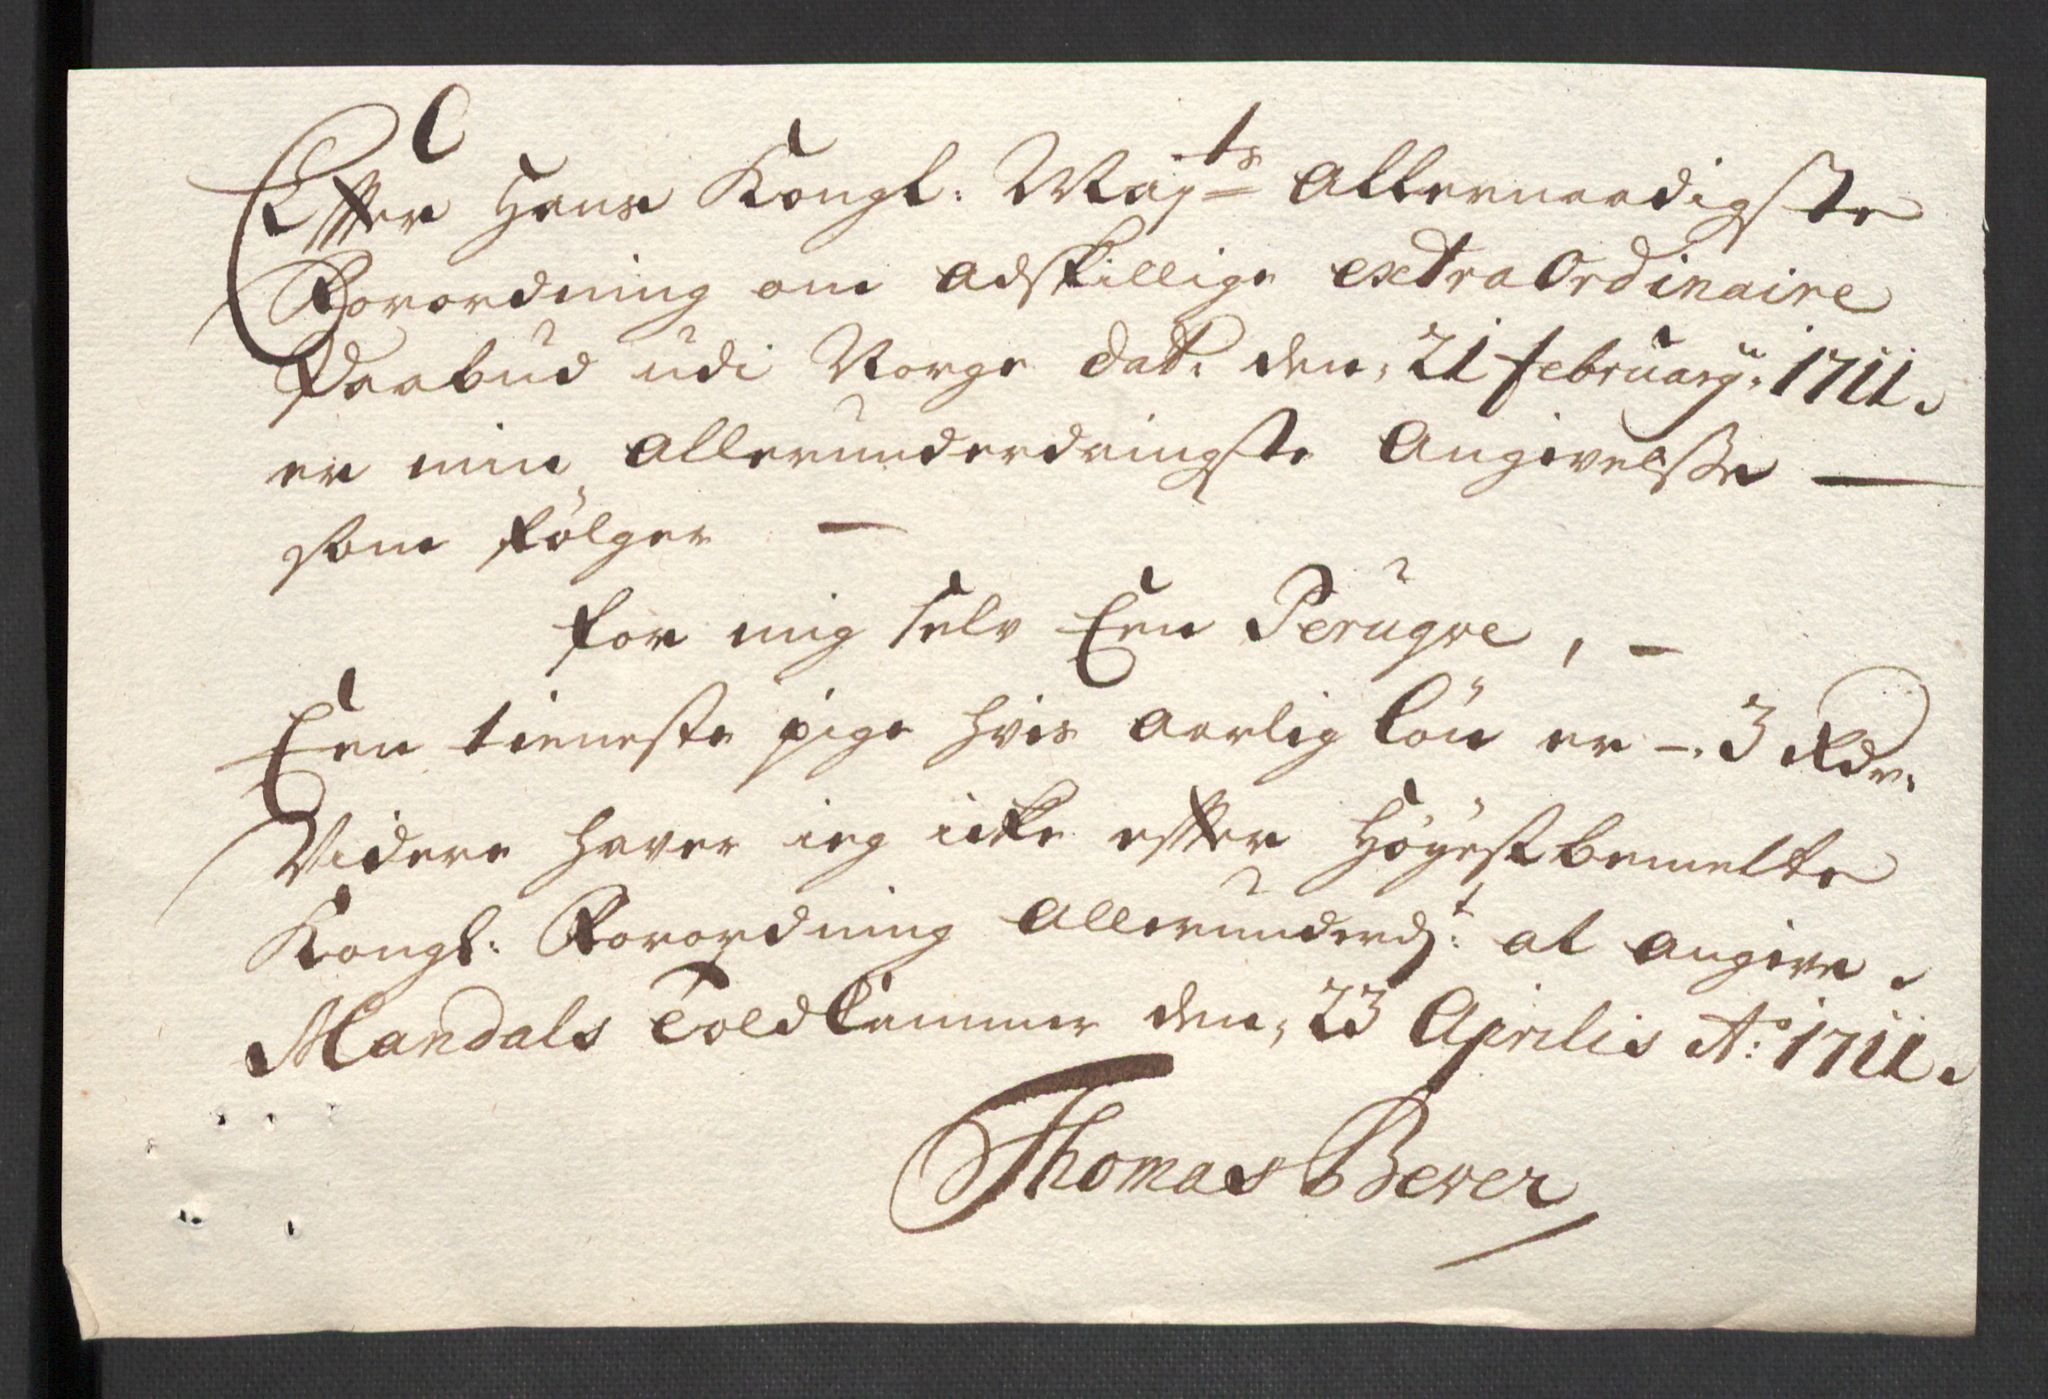 Effter Hans Kongl: Maj.ts Allernaadigste
Forordning om adskillige extra Ordinaire
Paabud udi Norge dat: den, 21 february: 1711.
er min allerunderdanigste Angivelsse —
som fölger —
for mig selv Een Peruqve, —
Een tieneste pige hvis aarlig lön er —. 3 Rdr.
Videre haver ieg icke effter Höyestbemelte
Kongl: Forordning allerunderd.t: at angive.
Mandals Toldkammer den, 23 Aprilis Ao: 1711.
Thomas Bever